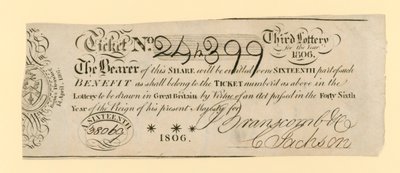 Ticket No. 24,399
Third Lottery
for the Year
1806.
The Bearer of this SHARE will be entitled to one SIXTEENTH part of such
BENEFIT as shall belong to the TICKET number'd as above in the
Lottery to be drawn in Great Britain by Virtue of an Act passed in the Forty Sixth
Year of the Reign of his present Majesty for
A SIXTEENTH
* * *
1806.
Branscomb & Co
C Jackson